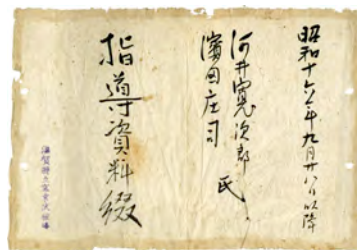 昭和十六年九月廿八日以降
河井寬次郎
濱田庄司 氏
指導資料綴
滋賀縣立窯業試驗場